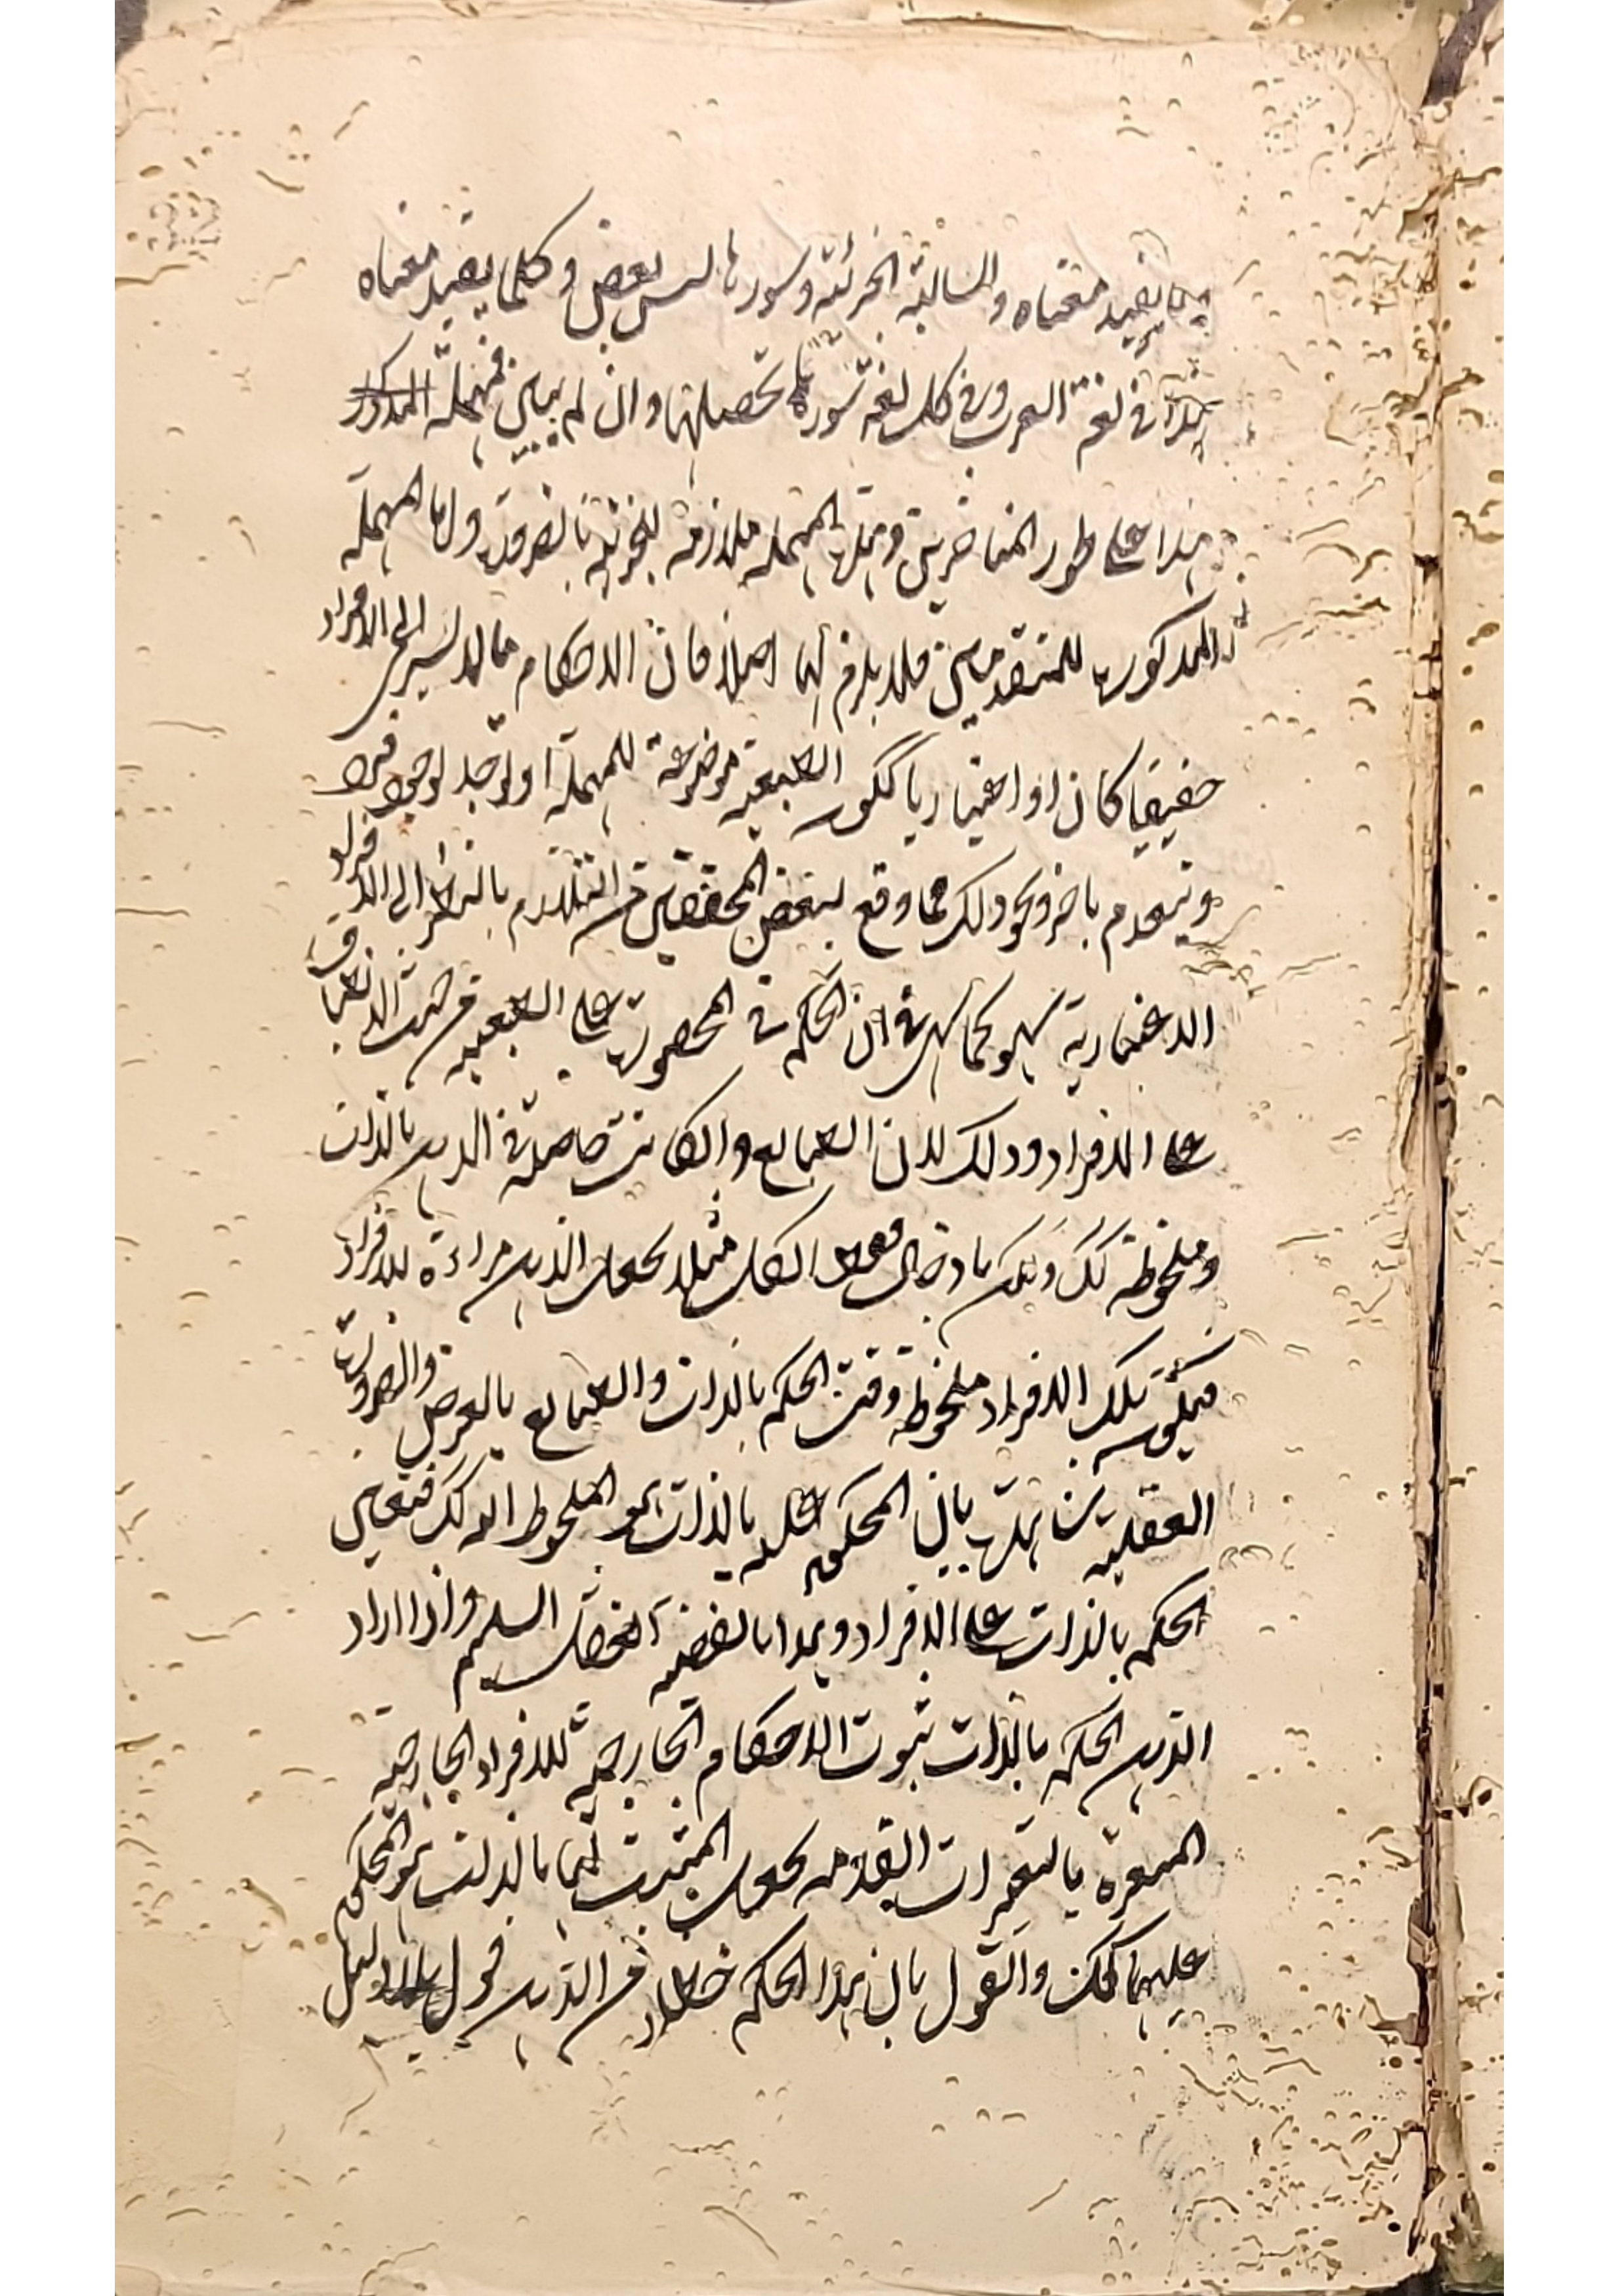 يفيد معناه والسالبة الجزئية وسورها ليس بعض وكلما يفيد معناه
هذا في لغة العرب وفي كل لغة سور تحصيلها وان لم يبين فمهملة
هذا على طور المتاخرين ومثل المهملة ملازمة للجزئية بالضرورة واما المهملة
المذكورة للمتقدمين فلا يلزم لها اصلا فان الاحكام مالا يسري الى الافراد
حقيقيا كان او اعتباريا ككون الطبيعة موضوعة للمهملة او توجد لوجود فرد
وتنعدم باخر ونحو ذلك مما وقع لبعض المحققين من التلازم بالنظر الى الافراد
الاعتبارية سهو كما سهى في ان الحكم في المحصورة على الطبيعة من حيث الانطباق
على الافراد وذلك لان الطبايع والكانت حاصلة في الذهن بالذات
وملحوظة كك ولكن بادخال لفظ الكل مثلا يجعل الذهن مراءة للافراد
فيكون تلك الافراد ملحوظة وقت الحكم بالذات والطبايع بالعرض والضرورة
العقلية شاهدة بان المحكوم عليه بالذات هو الملحوظ اليه كك فتعين
الحكم بالذات على الافراد وهذا بالفضية العقل السليم واذا اراد
الذهن الحكم بالذات ثبوت الاحكام الخارجية للافراد الخارجية
المعبرة بالتعبيرات القدمة يجعل المثبت لها بالذات هو المحكوم
عليها كك والقول بان هذا الحكم خطاء من الذهن قول بلا دليل